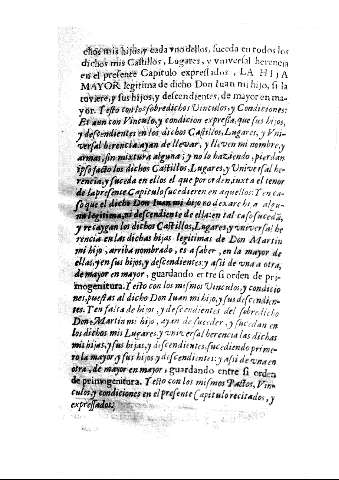 ellos mis hijos, y cada vno dellos, suceda en todos los
dichos mis Castillos, Lugares, y vniversal herencia
en el presente Capitulo expressados, LA HIJA
MAYOR legitima de dicho Don Iuan mi hijo, si la
tuviere, y sus hijos, y descendientes, de mayor en ma-
yor. Y esto con los sobredichos Vinculos, y Condiciones:
Et aun con Vinculo, y condicion expressa, que sus hijos,
y descendientes en los dichos Castillos, Lugares, y Vni-
versal herencia, ayan de llevar, y lleven mi nombre, y
armas, sin mixtura alguna; y no lo haziendo, pierdan
ipso facto los dichos Castillos, Lugares, y Vniversal he-
rencia, y suceda en ellos el que por orden, iuxta el tenor
de la presente Capitulo sucedieren en aquellos: Y en ca-
so que el dicho Don Iuan mi hijo no dexare hija algu-
na legitima, ni descendiente de ella, en tal caso suceda,
y recaygan los dichos Castillos, Lugares, y vniversal he-
rencia en las dichas hijas legitimas de Don Martin
mi hijo, arriba nombrado, es a saber, en la mayor de
ellas, y en sus hijos, y descendientes: y assi de vna a otra,
de mayor en mayor, guardando entre si orden de pri-
mogenitura. Y esto con los mesmos Vinculos, y condicio-
nes, puestas al dicho Don Iuan mi hijo, y sus descendien-
tes. Y en falta de hijos, y descendientes del sobredicho
Don Martin mi hijo, ayan de suceder, y sucedan en
los dichos mis Lugares, y vniversal herencia las dichas
mi hijas, y sus hijas, y descendientes, sucediendo prime-
ro la mayor, y sus hijos y descendientes: y assi de vna en
otra, de mayor en mayor, guardando entre si orden
de primogenitura. Y esto con los mesmos Pactos, Vin-
culos, y condiciones en el presente Capitulo recitados, y
expressados,